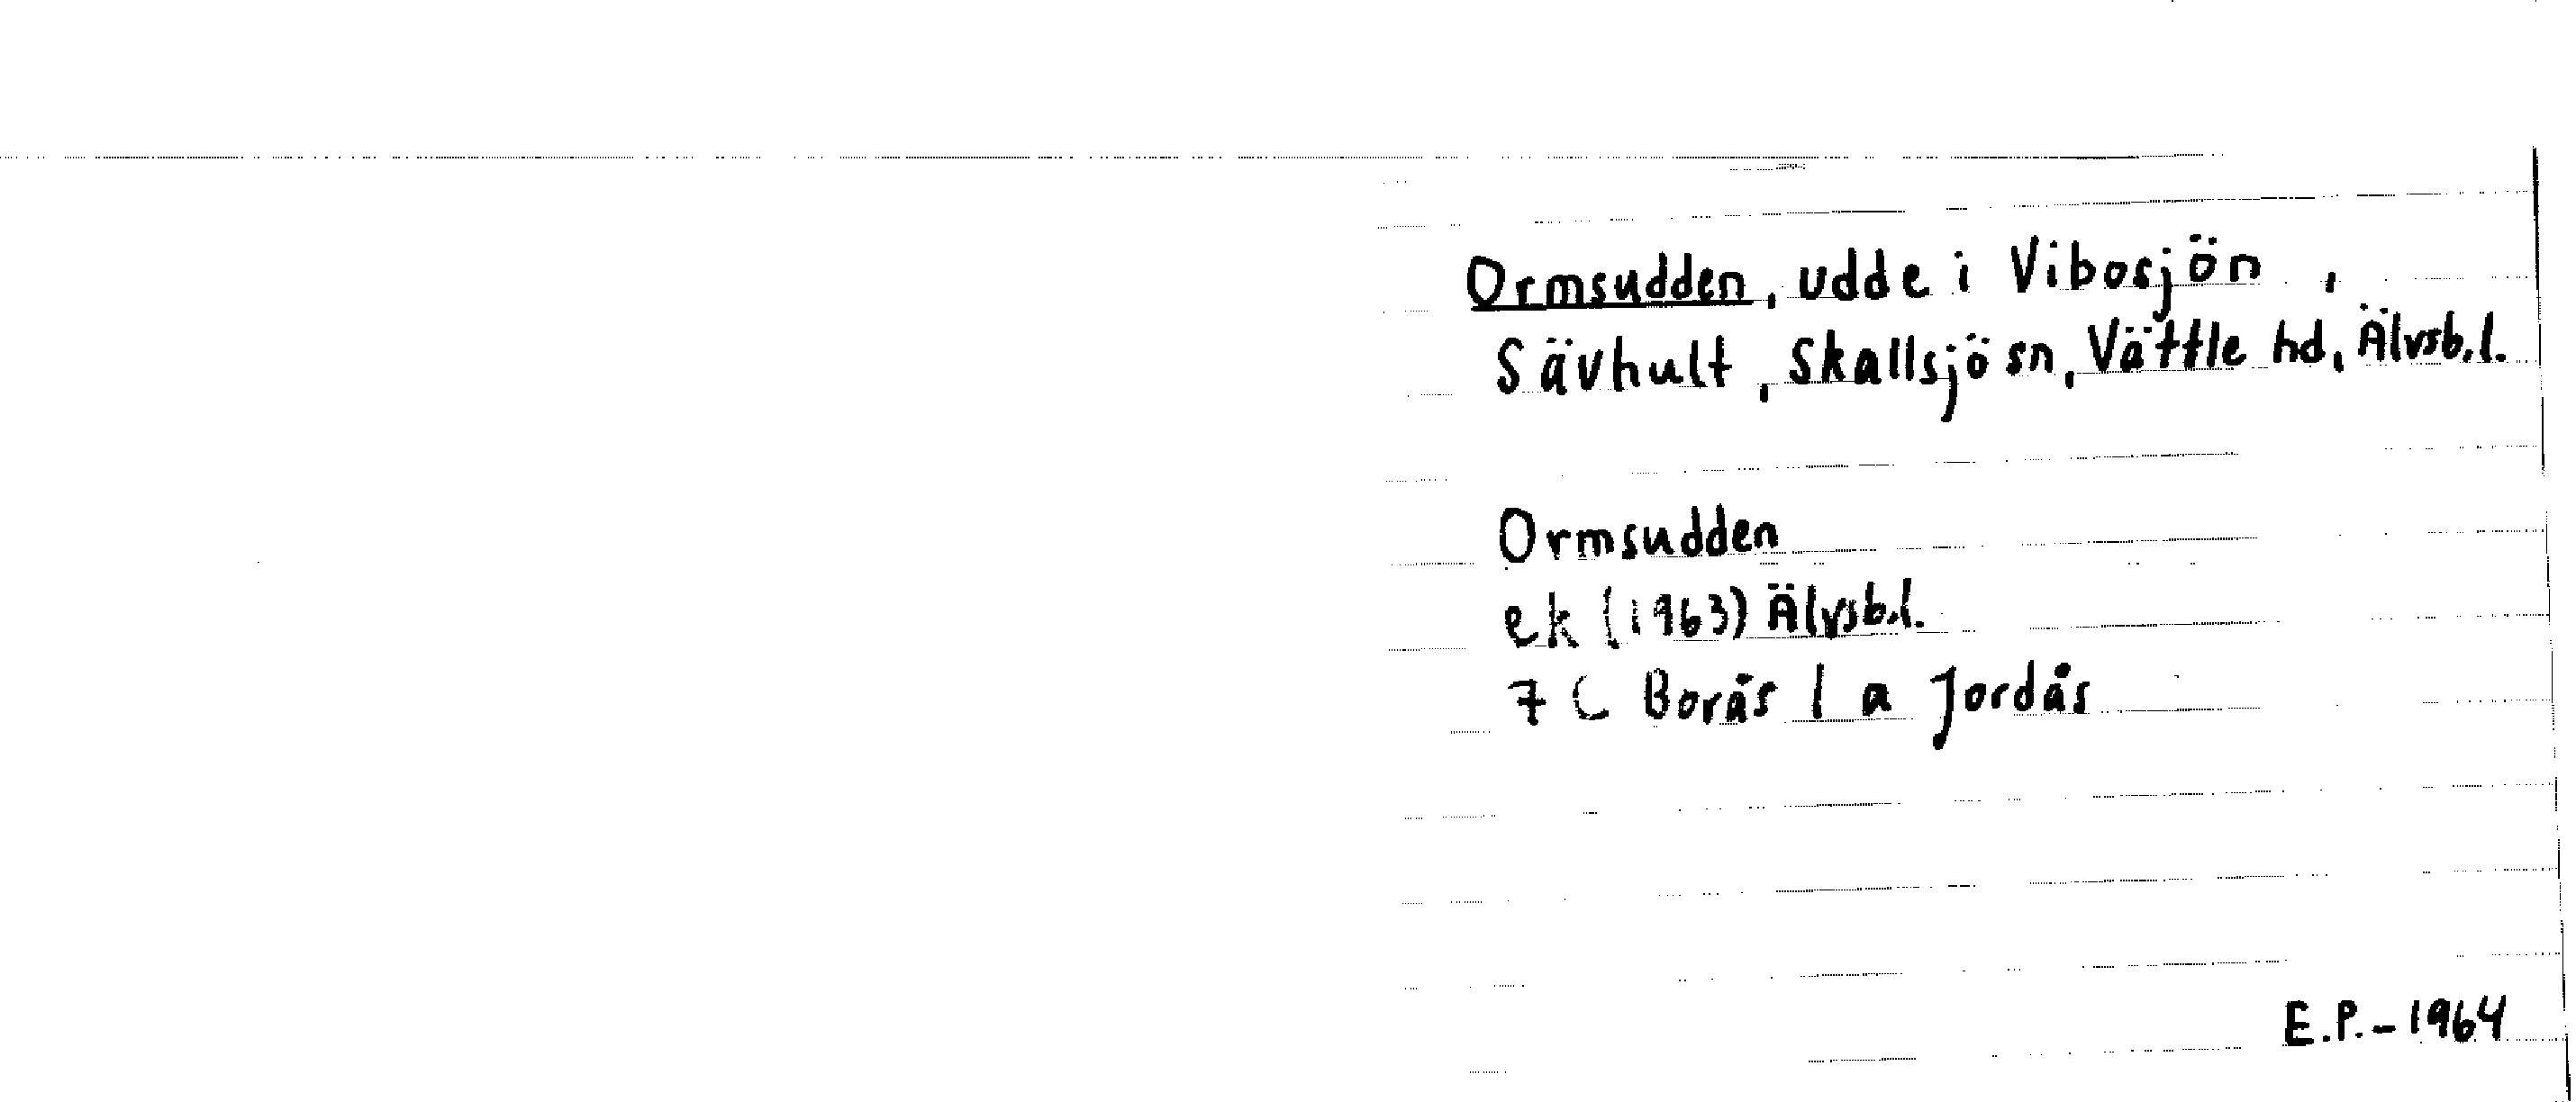 Ormsudden, udde i Vibosjön,
Sävhult, Skallsjö sn, Vättle hd, Älvsb.l.
Ormsudden
ek (1963) Älvsb.l.
7 C Borås 1 a Jordås
E.P. - 1964